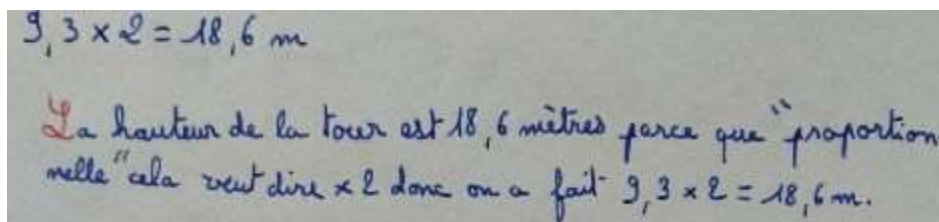 9,3 × 2 = 18,6 m
La hauteur de la tour est 18,6 mètres parce que "proportion
nelle" cela veut dire × 2 donc on a fait 9,3 × 2 = 18,6 m.